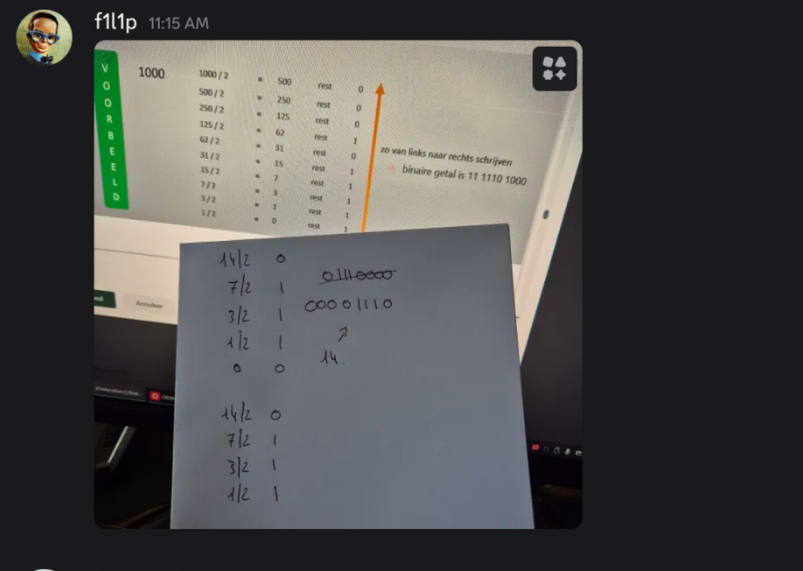 f1l1p 11:15 AM
VOORBEELD
1000
1000 / 2 = 500 rest 0
500 / 2 = 250 rest 0
250 / 2 = 125 rest 0
125 / 2 = 62 rest 1
62 / 2 = 31 rest 0
31 / 2 = 15 rest 1
15 / 2 = 7 rest 1
7 / 2 = 3 rest 1
3 / 2 = 1 rest 1
1 / 2 = 0 rest 1
zo van links naar rechts schrijven
binaire getal is 11 1110 1000
Annuleer
14/2 0
7/2 1
3/2 1
1/2 1
0 0
01110000
00001110
14.
14/2 0
7/2 1
3/2 1
1/2 1